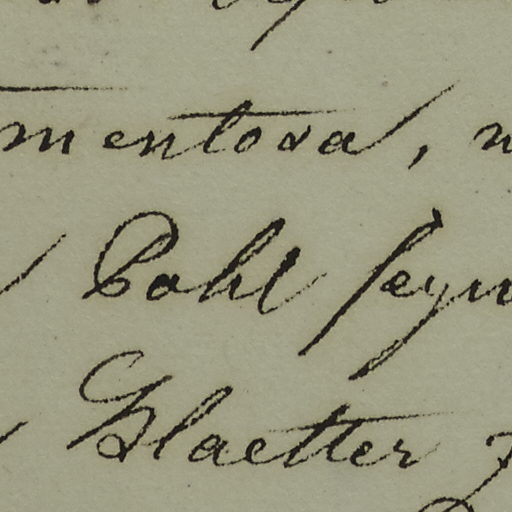 mentosa,
Pohl seyn
Blaetter